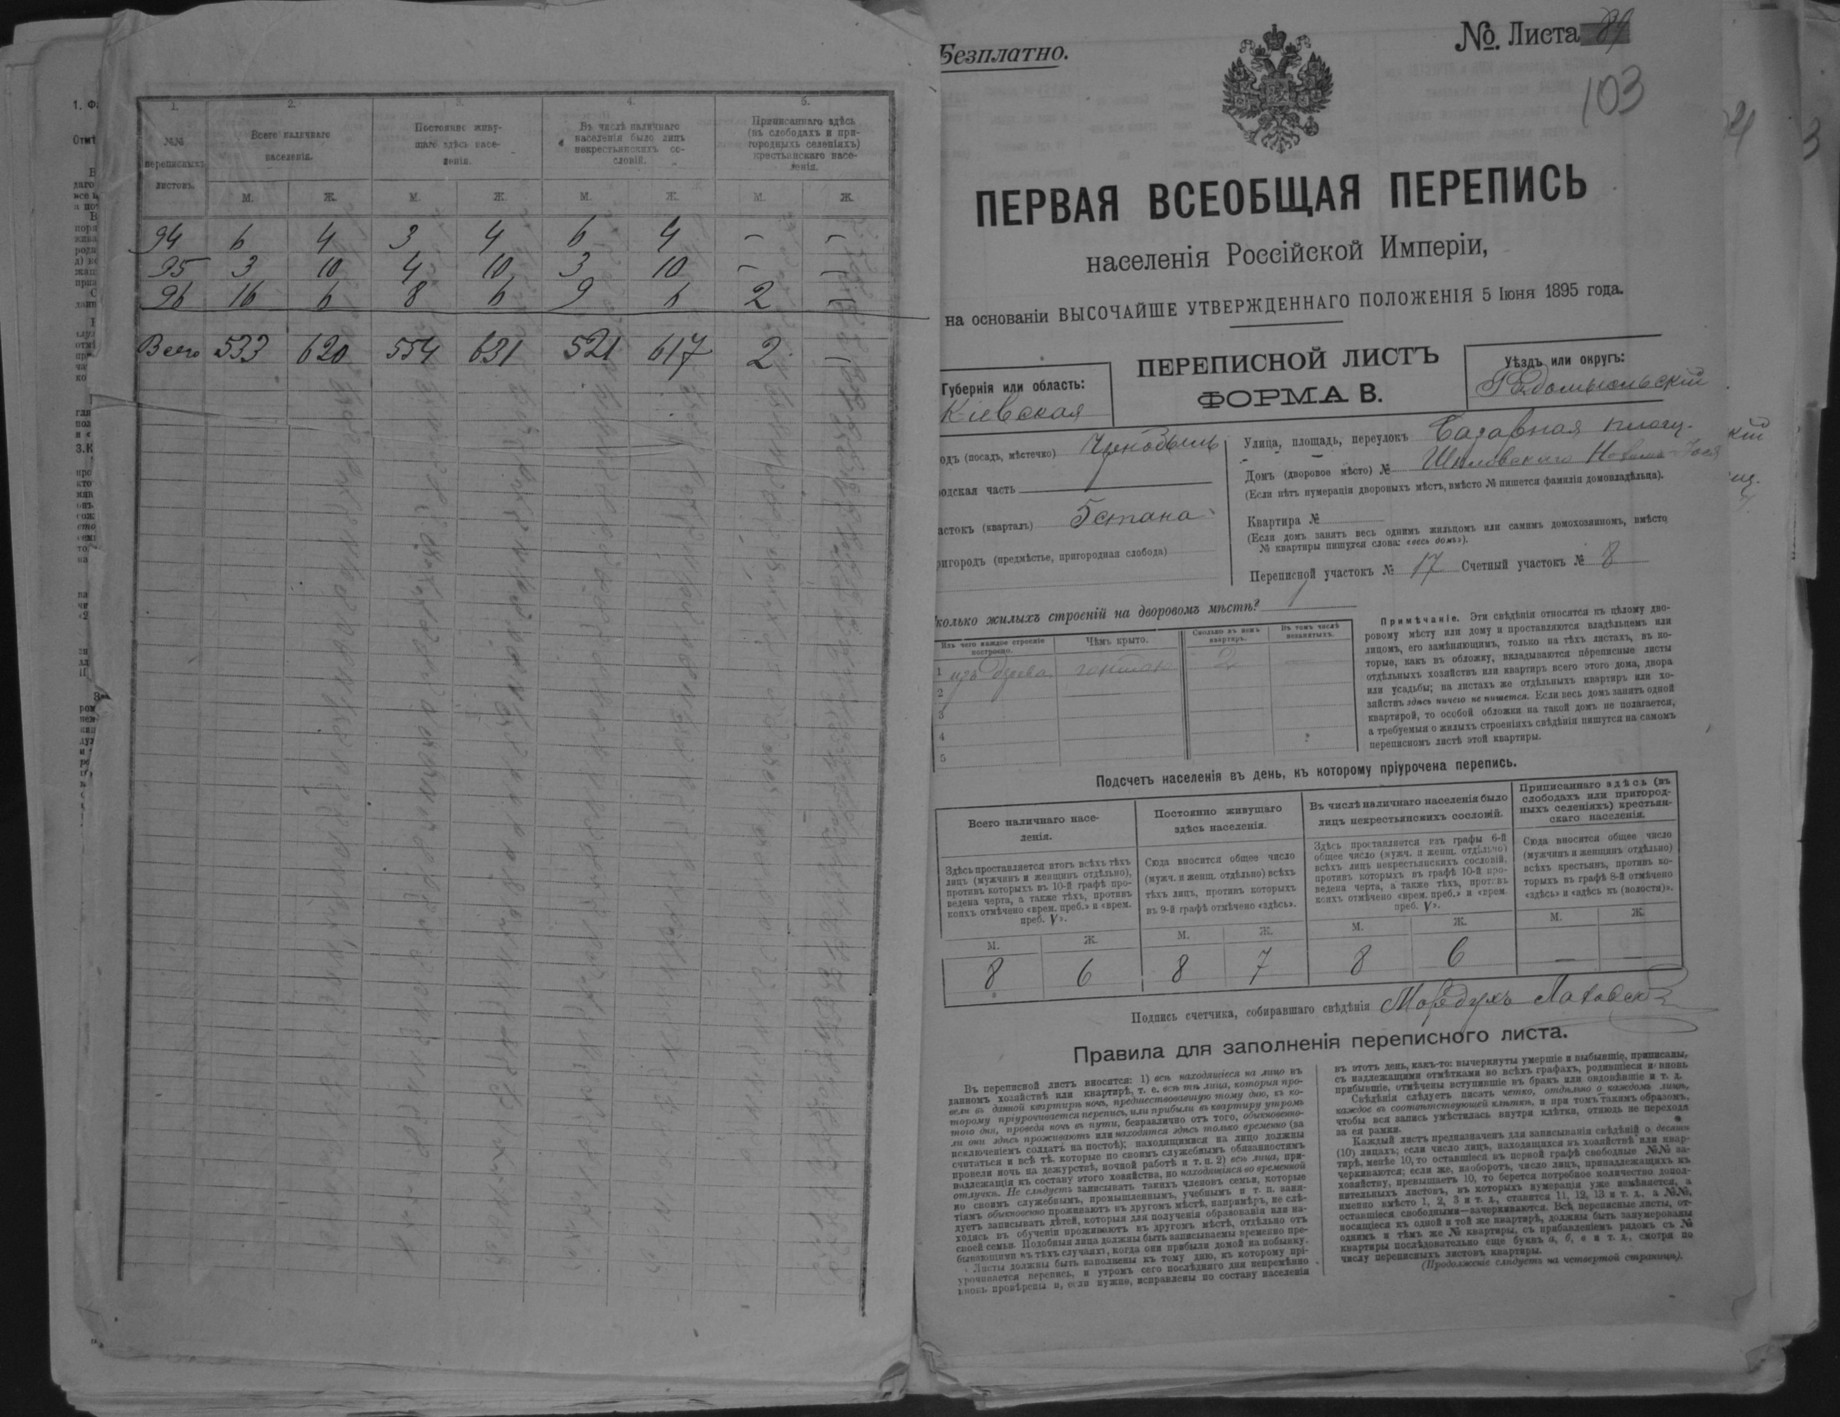 1. 2. 3. 4. 5.
№№ переписныхъ листовъ.
Всего наличнаго населенія.
Постоянно живущаго здѣсь населенія.
Въ числѣ наличнаго населенія было лицъ некрестьянскихъ сословій.
Приписаннаго здѣсь (въ слободахъ и пригородныхъ селеніяхъ) крестьянскаго населенія.
М. Ж. М. Ж. М. Ж. М. Ж.
94 6 4 3 4 6 4 – –
95 3 10 4 10 3 10 – –
96 16 6 8 6 9 6 2 –
Всего 533 620 554 631 521 617 2 –
Безплатно.
№ Листа 89
103
ПЕРВАЯ ВСЕОБЩАЯ ПЕРЕПИСЬ
населенія Россійской Имперіи,
на основаніи ВЫСОЧАЙШЕ УТВЕРЖДЕННАГО ПОЛОЖЕНІЯ 5 Іюня 1895 года.
Губернія или область:
Кіевская
ПЕРЕПИСНОЙ ЛИСТЪ
ФОРМА В.
Уѣздъ или округъ:
Радомысльскій
одъ (посадъ, мѣстечко) Чернобыль
одская часть
астокъ (кварталъ)
ригородъ (предмѣстье, пригородная слобода)
Улица, площадь, переулокъ Базарная площ.
Домъ (дворовое мѣсто) №
(Если нѣтъ нумераціи дворовыхъ мѣстъ, вмѣсто № пишется фамилія домовладѣльца).
Квартира №
(Если домъ занятъ весь однимъ жильцомъ или самимъ домохозяиномъ, вмѣсто
№ квартиры пишутся слова: «весь домъ»).
Переписной участокъ № 17 Счетный участокъ № 8
колько жилыхъ строеній на дворовомъ мѣстѣ?
Изъ чего каждое строеніе построено.
Чѣмъ крыто.
Сколько въ немъ квартиръ.
Въ томъ числѣ незанятыхъ.
1 изъ дерева 2
2
3
4
5
Примѣчаніе. Эти свѣдѣнія относятся къ цѣлому дво-
ровому мѣсту или дому и проставляются владѣльцемъ или
лицомъ, его замѣняющимъ, только на тѣхъ листахъ, въ ко-
торые, какъ въ обложку, вкладываются переписные листы
отдѣльныхъ хозяйствъ или квартиръ всего этого дома, двора
или усадьбы; на листахъ же отдѣльныхъ квартиръ или хо-
зяйствъ здѣсь ничего не пишется. Если весь домъ занятъ одной
квартирой, то особой обложки на такой домъ не полагается,
а требуемыя о жилыхъ строеніяхъ свѣдѣнія пишутся на самомъ
переписномъ листѣ этой квартиры.
Подсчетъ населенія въ день, къ которому пріурочена перепись.
Всего наличнаго насе-
ленія.
Здѣсь проставляется итогъ всѣхъ тѣхъ
лицъ (мужчинъ и женщинъ отдѣльно),
противъ которыхъ въ 10-й графѣ про-
ведена черта, а также тѣхъ, противъ
коихъ отмѣчено «врем. преб.» и «врем.
преб. V».
Постоянно живущаго
здѣсь населенія.
Сюда вносится общее число
(мужч. и женщ. отдѣльно) всѣхъ
тѣхъ лицъ, противъ которыхъ
въ 9-й графѣ отмѣчено «здѣсь».
Въ числѣ наличнаго населенія было
лицъ некрестьянскихъ сословій.
Здѣсь проставляется изъ графы 6-й
общее число (мужч. и женщ. отдѣльно)
всѣхъ лицъ некрестьянскихъ сословій,
противъ которыхъ въ графѣ 10-й про-
ведена черта, а также тѣхъ, противъ
коихъ отмѣчено «врем. преб.» и «врем.
преб. V».
Приписаннаго здѣсь (въ
слободахъ или пригород-
ныхъ селеніяхъ) крестьян-
скаго населенія.
Сюда вносится общее число
(мужчинъ и женщинъ отдѣльно)
всѣхъ крестьянъ, противъ ко-
торыхъ въ графѣ 8-й отмѣчено
«здѣсь» и «здѣсь въ (волости)».
М. Ж. М. Ж. М. Ж. М. Ж.
8 6 8 7 8 6 – –
Подпись счетчика, собиравшаго свѣдѣнія Мордухъ
Правила для заполненія переписного листа.
Въ переписной листъ вносятся: 1) всѣ находящіеся на лицо въ
данномъ хозяйствѣ или квартирѣ, т. е. всѣ тѣ лица, которыя про-
вели въ данной квартирѣ ночь, предшествовавшую тому дню, къ ко-
торому пріурочивается перепись, или прибыли въ квартиру утромъ
того дня, проведя ночь въ пути, безразлично отъ того, обыкновенно-
ли они здѣсь проживаютъ или находятся здѣсь только временно (за
исключеніемъ солдатъ на постоѣ); находящимися на лицо должны
считаться и всѣ тѣ, которые по своимъ служебнымъ обязанностямъ
провели ночь на дежурствѣ, ночной работѣ и т. п. 2) всѣ лица, при-
надлежащія къ составу этого хозяйства, но находящіяся во временной
отлучкѣ. Не слѣдуетъ записывать такихъ членовъ семьи, которые
по своимъ служебнымъ, промышленнымъ, учебнымъ и т. п. заня-
тіямъ обыкновенно проживаютъ въ другомъ мѣстѣ, напримѣръ, не слѣ-
дуетъ записывать дѣтей, которыя для полученія образованія или на-
ходясь въ обученіи проживаютъ въ другомъ мѣстѣ, отдѣльно отъ
своей семьи. Подобныя лица должны быть записываемы временно пре-
бывающими въ тѣхъ случаяхъ, когда они прибыли домой на побывку.
Листы должны быть заполнены къ тому дню, къ которому прі-
урочивается перепись, и утромъ сего послѣдняго дня непремѣнно
вновь провѣрены и, если нужно, исправлены по составу населенія
въ этотъ день, какъ-то: вычеркнуты умершіе и выбывшіе, приписаны,
съ надлежащими отмѣтками во всѣхъ графахъ, родившіеся и вновь
прибывшіе, отмѣчены вступившіе въ бракъ или овдовѣвшіе и т. д.
Свѣдѣнія слѣдуетъ писать четко, отдѣльно о каждомъ лицѣ,
каждое въ соотвѣтствующей клѣткѣ, и при томъ такимъ образомъ,
чтобы вся запись умѣстилась внутри клѣтки, отнюдь не переходя
за ея рамки.
Каждый листъ предназначенъ для записыванія свѣдѣній о десяти
(10) лицахъ; если число лицъ, находящихся въ хозяйствѣ или квар-
тирѣ, менѣе 10, то оставшіеся въ первой графѣ свободные №№ за-
черкиваются; если же, наоборотъ, число лицъ, принадлежащихъ къ
хозяйству, превышаетъ 10, то берется потребное количество допол-
нительныхъ листовъ, въ которыхъ нумерація уже измѣняется, а
именно вмѣсто 1, 2, 3 и т. д., ставятся 11, 12, 13 и т. д., а №№,
оставшіеся свободными—зачеркиваются. Всѣ переписные листы, от-
носящіеся къ одной и той же квартирѣ, должны быть занумерованы
однимъ и тѣмъ же № квартиры, съ прибавленіемъ рядомъ съ №
квартиры послѣдовательно еще буквъ а, б, в и т. д., смотря по
числу переписныхъ листовъ квартиры.
(Продолженіе слѣдуетъ на четвертой страницѣ).